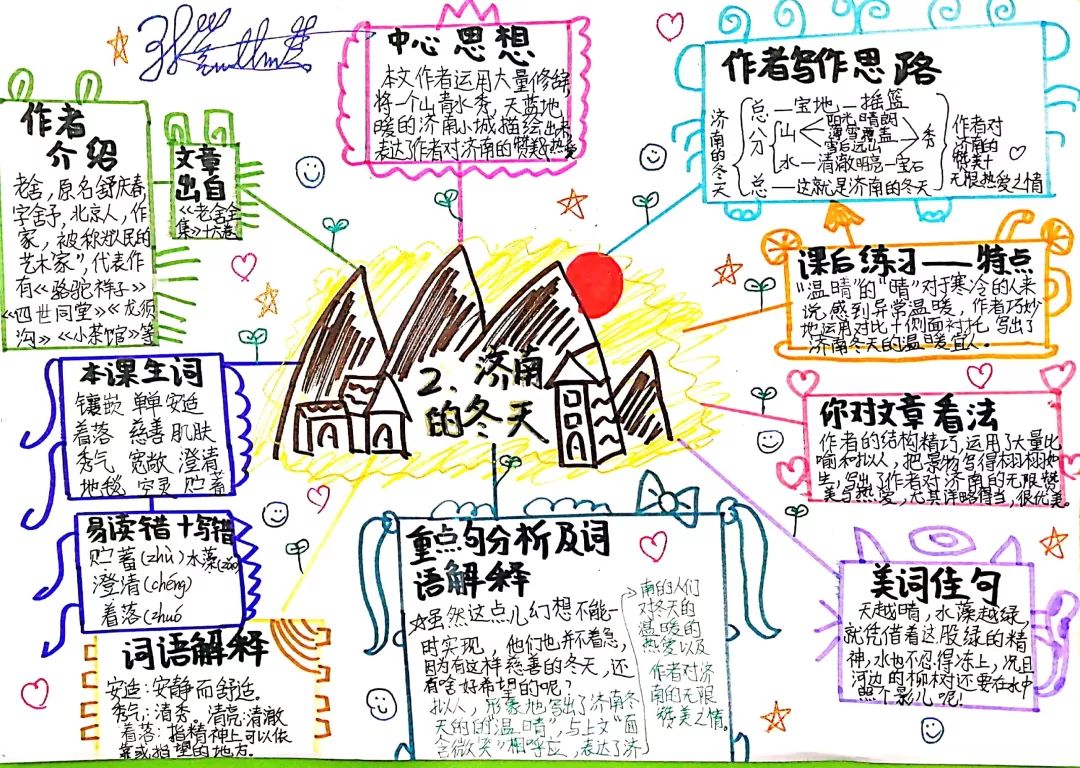 中心思想
本文作者运用大量修辞,
将一个山青水秀,天蓝地
暖的济南小城描绘出来
表达作者对济南的赞美与热爱
作者写作思路
济南的冬天
总—宝地,—摇篮
分
山
阳光晴朗
薄雪覆盖
雪后远山
秀
水—清澈明亮—宝石
总—这就是济南的冬天
作者对
济南的
赞美十
无限热爱之情
作者
介绍
老舍,原名舒庆春,
字舍予,北京人,作
家,被称为人民的
艺术家”,代表作
有《骆驼祥子》
《四世同堂》《龙须
沟》《小茶馆》等
文章
出自
《老舍全
集》十六卷
课后练习——特点
“温晴”的“晴”对于寒冷的人来
说,感到异常温暖,作者巧妙
地运用对比十侧面衬托,写出了
济南冬天的温暖宜人。
2.济南
的冬天
本课生词
镶嵌 单单 安适
着落 慈善 肌肤
秀气 宽敞 澄清
地毯 空灵 贮蓄
你对文章看法
作者的结构精巧,运用了大量比
喻和拟人,把景物写得栩栩如
生,写出了作者对济南的无限赞
美与热爱,尤其详略得当,很优美。
易读错十写错
贮蓄(zhù)水藻(zǎo)
澄清(chéng)
着落(zhuó
重点句分析及词
语解释
☆虽然这点儿幻想不能一
时实现,他们也并不着急,
因为有这样慈善的冬天,还
有啥好希望的呢?
拟人,形象地写出了济南冬
天的的“温晴”,与上文“面
含微笑”相呼应,表达了济
南的人们
对冬天的
温暖的
热爱以及
作者对济
南的无限
赞美之情。
美词佳句
天越晴,水藻越绿,
就凭借着这股绿的精
神,水也不忍得冻上,况且
河边的柳树还要在水中
照个影儿呢!
词语解释
安适:安静而舒适。
秀气:清秀。清亮:清澈
着落:指精神上可以依
靠或指望的地方。